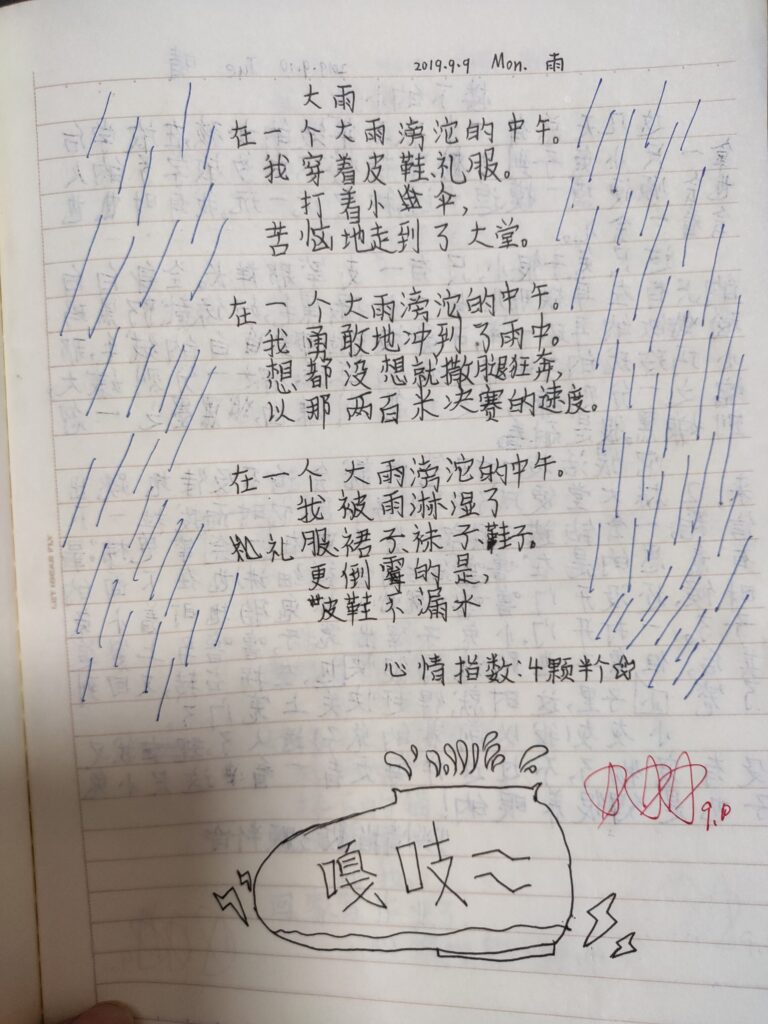 2019.9.9 Mon. 雨
大雨
在一个大雨滂沱的中午。
我穿着皮鞋、礼服。
打着小伞,
苦恼地走到了大堂。
在一个大雨滂沱的中午。
我勇敢地冲到了雨中。
想都没想就撒腿狂奔,
以那两百米决赛的速度。
在一个大雨滂沱的中午。
我被雨淋湿了
礼服、裙子、袜子、鞋子。
更倒霉的是,
皮鞋不漏水
心情指数:4颗半个☆
9.10
嘎吱~~